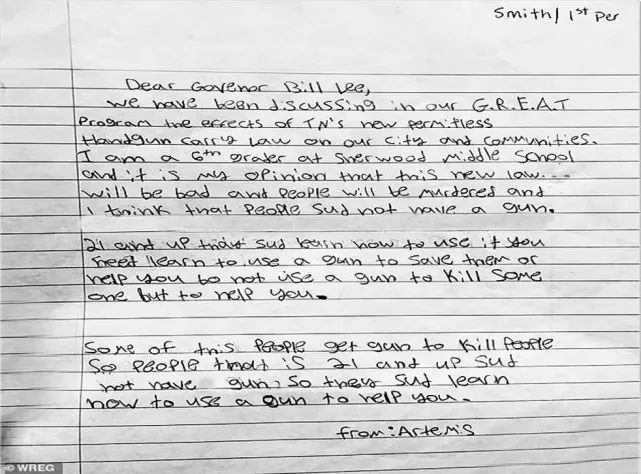 Smith/ 1st Per
Dear Govenor Bill Lee,
we have been discussing in our G.R.E.A.T
Program the effects of TN's new permitless
Handgun carry Law on our city and communities.
I am a 6th grader at Sherwood Middle School
and it is my opinion that this new law...
will be bad and people will be murdered and
I think that people sud not have a gun.
21 and up thay sud learn how to use it you
need learn to use a gun to save them or
help you to not use a gun to kill some
one but to help you.
Some of this people get gun to kill people
So people that is 21 and up sud
not have gun, so they sud learn
how to use a gun to help you.
from: Artemis
© WREG